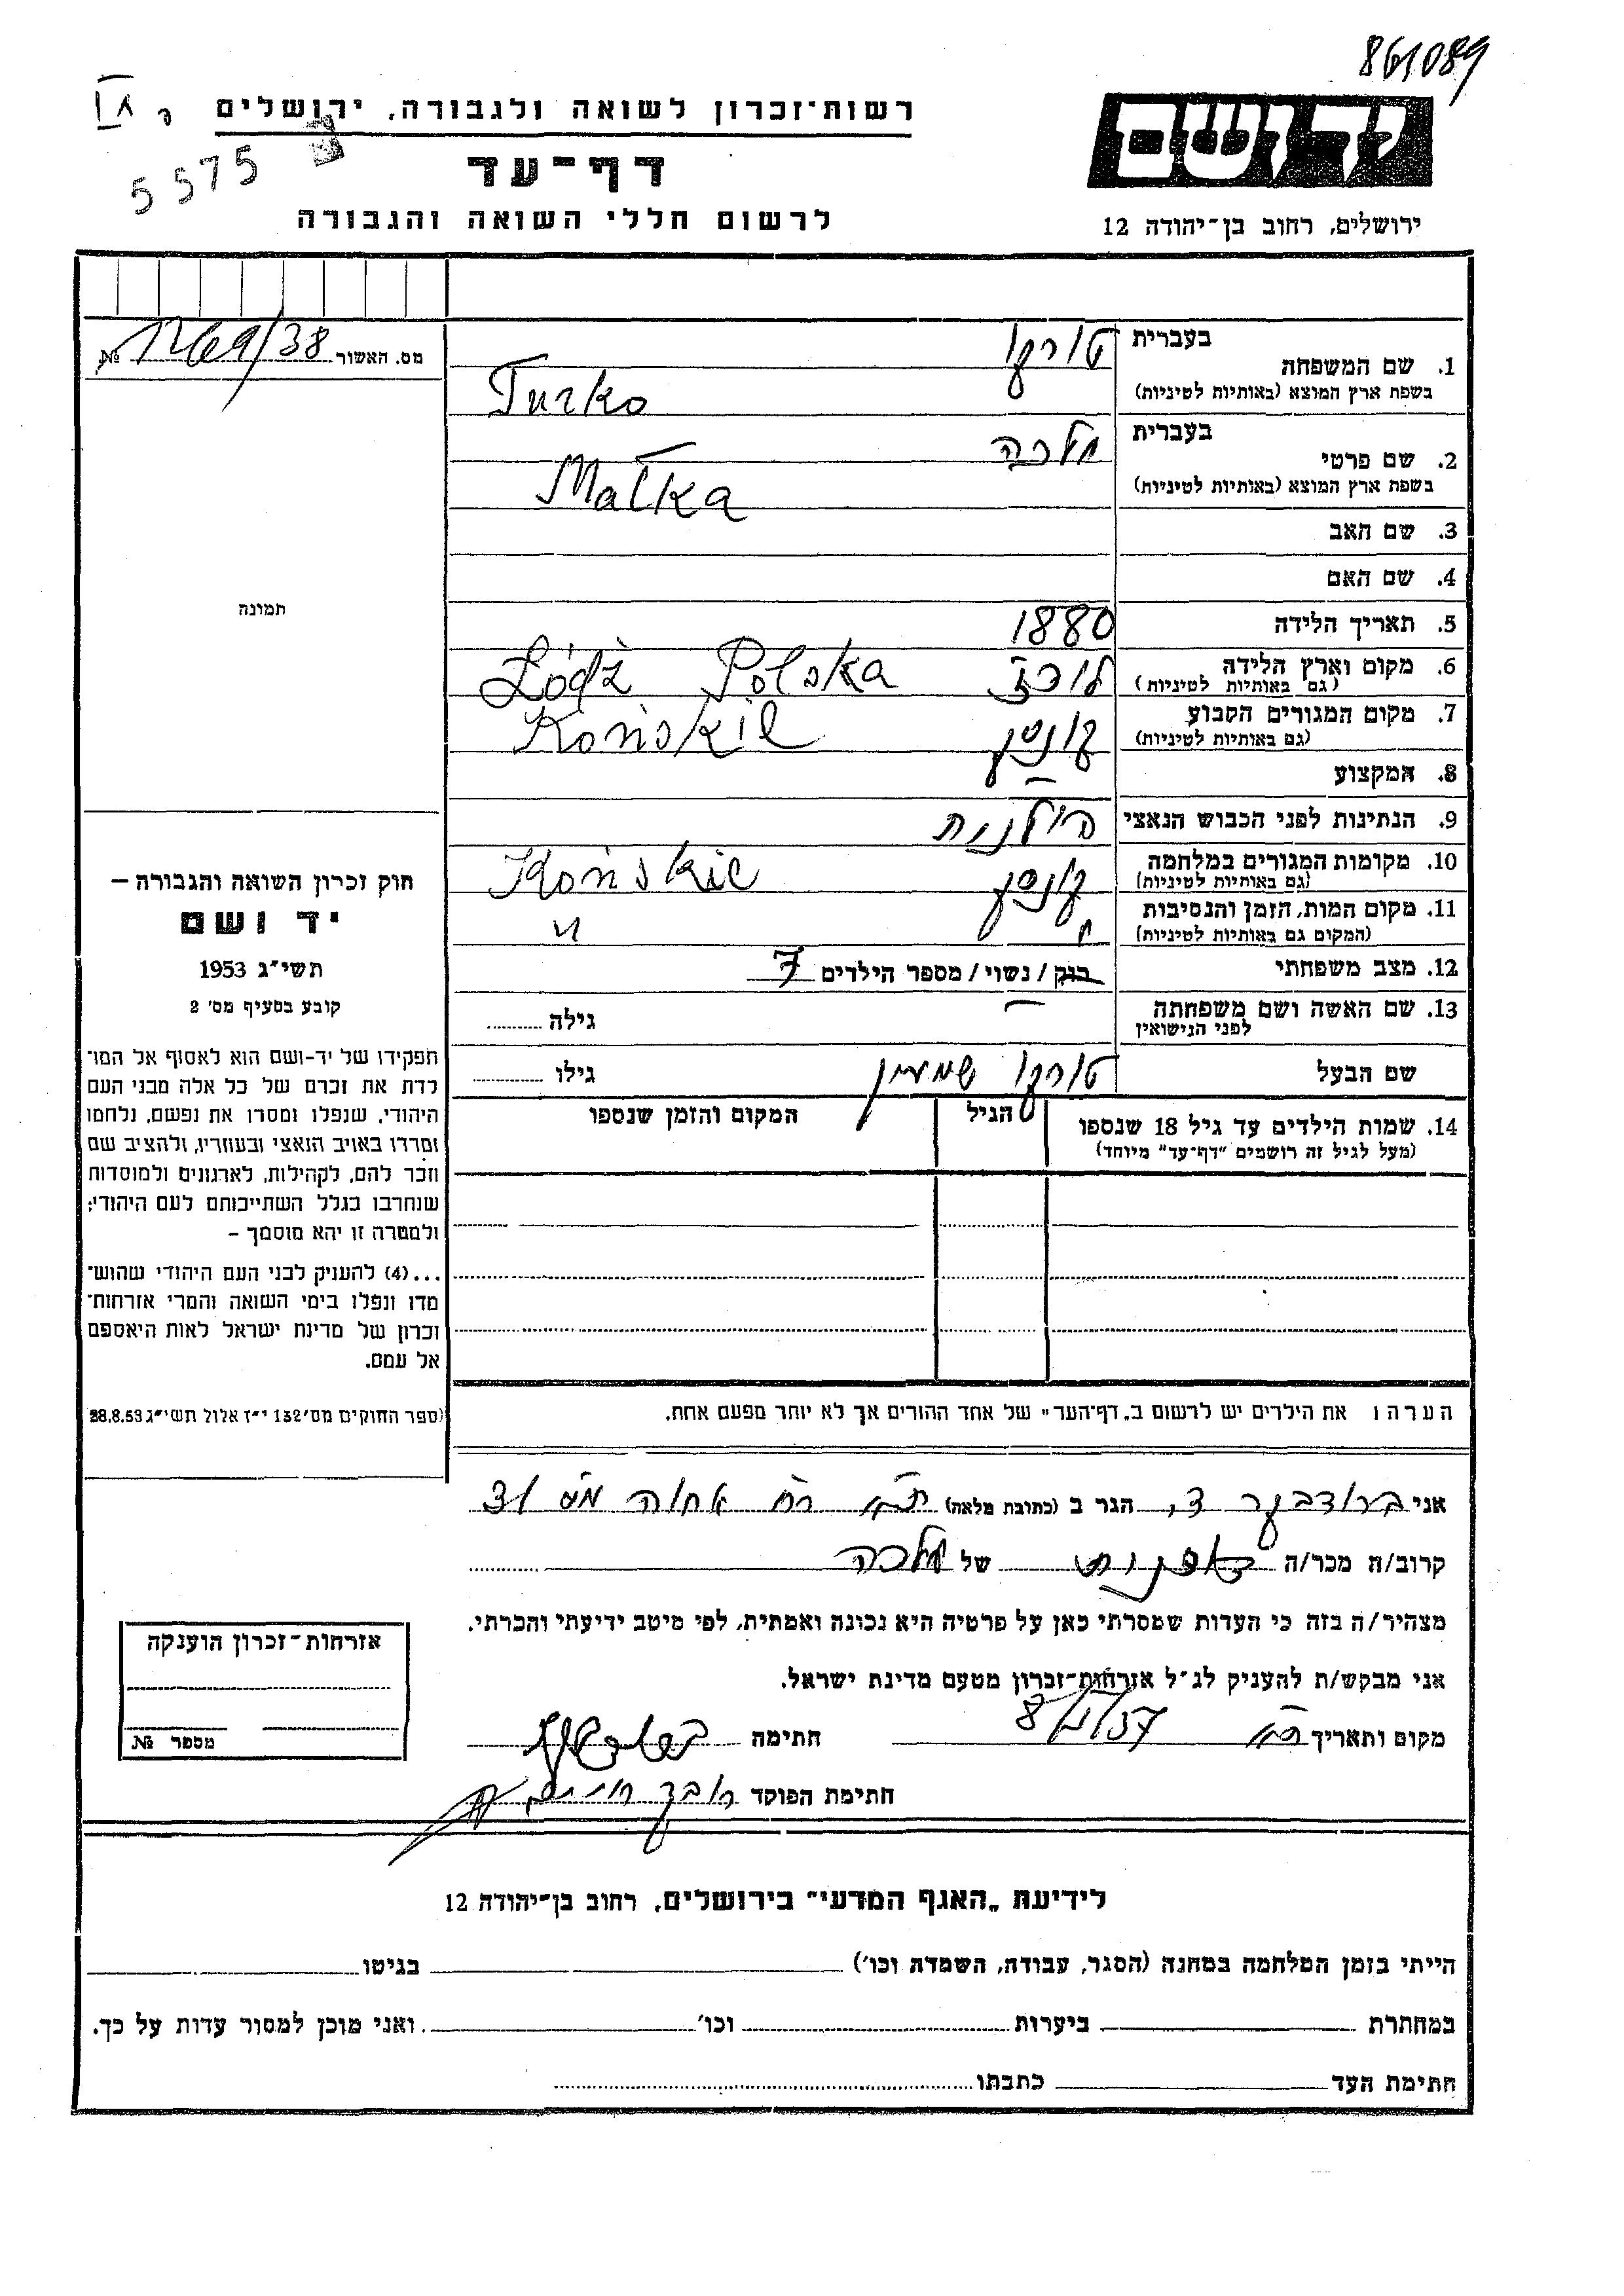 861089
רשות־זכרון לשואה ולגבורה, ירושלים
5575
דף־עד
לרשום חללי השואה והגבורה
יד ושם
ירושלים, רחוב בן־יהודה 12
מס. האשור 1269/38 №
1. שם המשפחה
בעברית טורקו
בשפת ארץ המוצא (באותיות לטיניות) Turko
2. שם פרטי
בעברית מלכה
בשפת ארץ המוצא (באותיות לטיניות) Malka
3. שם האב
4. שם האם
5. תאריך הלידה 1880
6. מקום וארץ הלידה (גם באותיות לטיניות) לודז Łódź Polska
7. מקום המגורים הקבוע (גם באותיות לטיניות) קונסק Końskie
8. המקצוע —
9. הנתינות לפני הכבוש הנאצי פולנית
10. מקומות המגורים במלחמה (גם באותיות לטיניות) קונסק Końskie
11. מקום המות, הזמן והנסיבות (המקום גם באותיות לטיניות) " "
12. מצב משפחתי רוק / נשוי / מספר הילדים 7
13. שם האשה ושם משפחתה לפני הנישואין — גילה
שם הבעל טורקו שמעון גילו
14. שמות הילדים עד גיל 18 שנספו (מעל לגיל זה רושמים "דף־עד" מיוחד)
הגיל
המקום והזמן שנספו
הערה: את הילדים יש לרשום ב"דף־העד" של אחד ההורים אך לא יותר מפעם אחת.
תמונה
חוק זכרון השואה והגבורה —
יד ושם
תשי"ג 1953
קובע בסעיף מס' 2
תפקידו של יד-ושם הוא לאסוף אל המו־
לדת את זכרם של כל אלה מבני העם
היהודי, שנפלו ומסרו את נפשם, נלחמו
ומרדו באויב הנאצי ובעוזריו, ולהציב שם
וזכר להם, לקהילות, לארגונים ולמוסדות
שנחרבו בגלל השתייכותם לעם היהודי;
ולמטרה זו יהא מוסמך –
...(4) להעניק לבני העם היהודי שהוש־
מדו ונפלו בימי השואה והמרי אזרחות־
זכרון של מדינת ישראל לאות היאספם
אל עמם.
(ספר החוקים מס' 132 י"ז אלול תשי"ג 28.8.53
אני ברודבקר ד. הגר ב (כתובת מלאה) ת"א רח אחוה מס 31
קרוב/ה מכר/ה של מלכה
מצהיר/ה בזה כי העדות שמסרתי כאן על פרטיה היא נכונה ואמתית, לפי מיטב ידיעתי והכרתי.
אני מבקש/ת להעניק לנ"ל אזרחות־זכרון מטעם מדינת ישראל.
מקום ותאריך ת"א חתימה
חתימת הפוקד
אזרחות־זכרון הוענקה
מספר №
לידיעת "האגף המדעי" בירושלים, רחוב בן־יהודה 12
הייתי בזמן המלחמה במחנה (הסגר, עבודה, השמדה וכו') בגיטו
במחתרת ביערות וכו' ואני מוכן למסור עדות על כך.
חתימת העד כתבתו